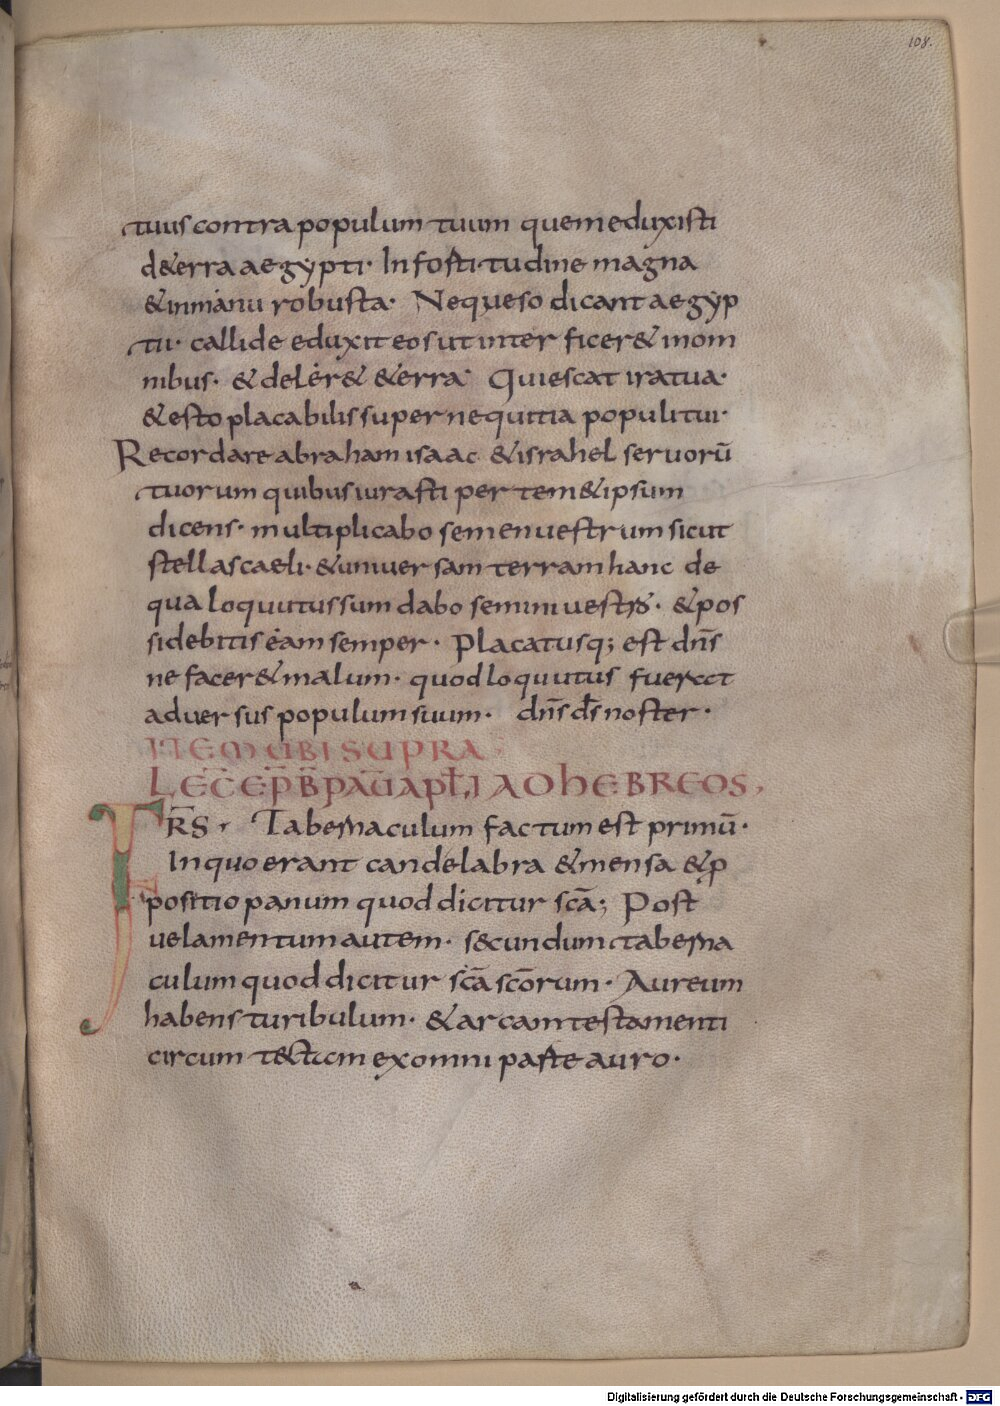 108.
tuus contra populum tuum quem eduxisti
de terra aegypti· In fortitudine magna
& in manu robusta· Ne queso dicant aegyp
tii· callide eduxit eos ut interficer& in mon
tibus· & deler& & erra· Quiescat ira tua·
& esto placabilis super nequitia populi tui·
Recordare abraham isaac & israhel seruorū
tuorum quibus iurasti per tem&ipsum
dicens· multiplicabo semen uestrum sicut
stellas caeli· & uniuersam terram hanc de
qua loquutus sum dabo semini uestro· & pos
sidebitis eam semper· Placatusq; est dn̄s
ne facer& malum· quod loquutus fuerat
aduersus populum suum· dn̄s d̄s noster·
ITEM UBI SUPRA
LEC̄ EP̄ B̄ PAŪ APŁI AD HEBREOS,
FR̄S· Tabernaculum factum est primū·
In quo erant candelabra & mensa & p
positio panum quod dicitur scā; Post
uelamentum autem· secundum taberna
culum quod dicitur scā scōrum· Aureum
habens turibulum· & arcam testamenti
circum tectam ex omni parte auro·
Digitalisierung gefördert durch die Deutsche Forschungsgemeinschaft - DFG